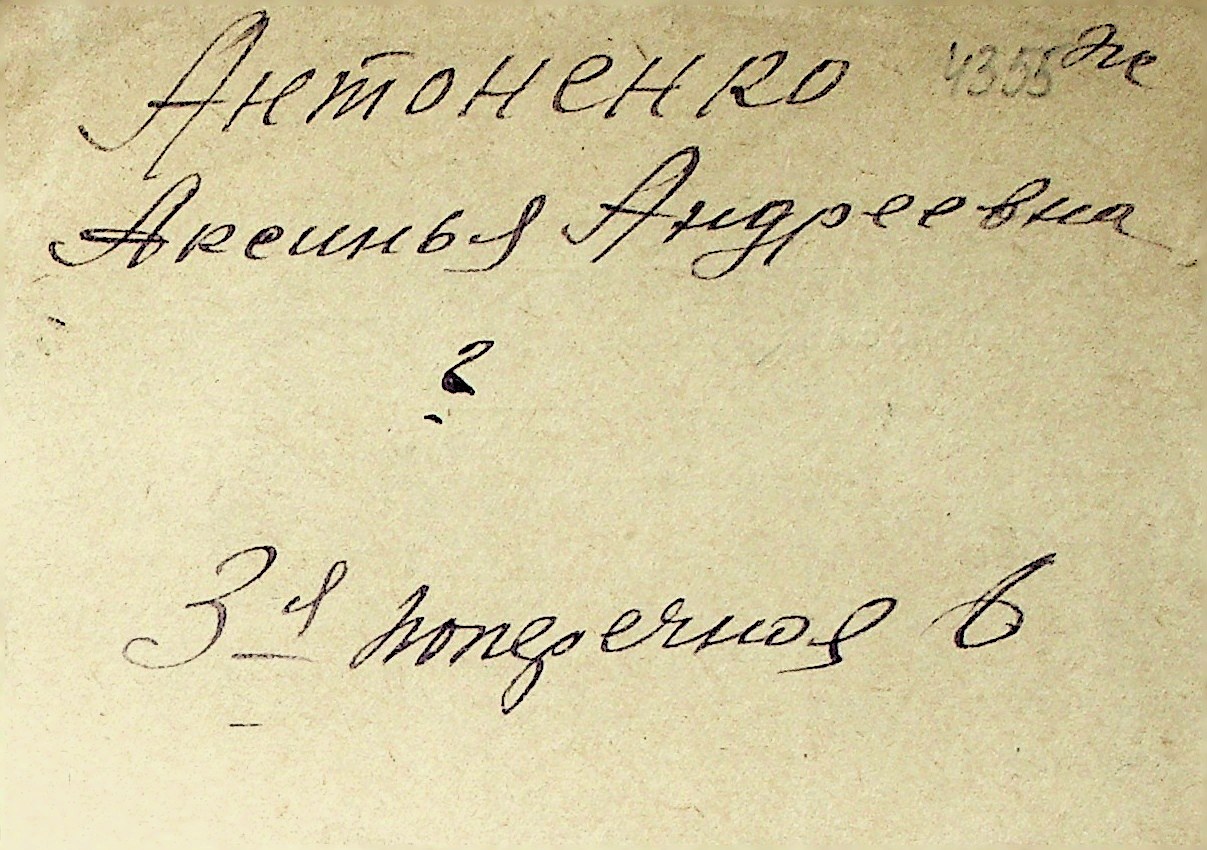 Антоненко 4355 же
Аксинья Андреевна
?
3-я поперечная 6